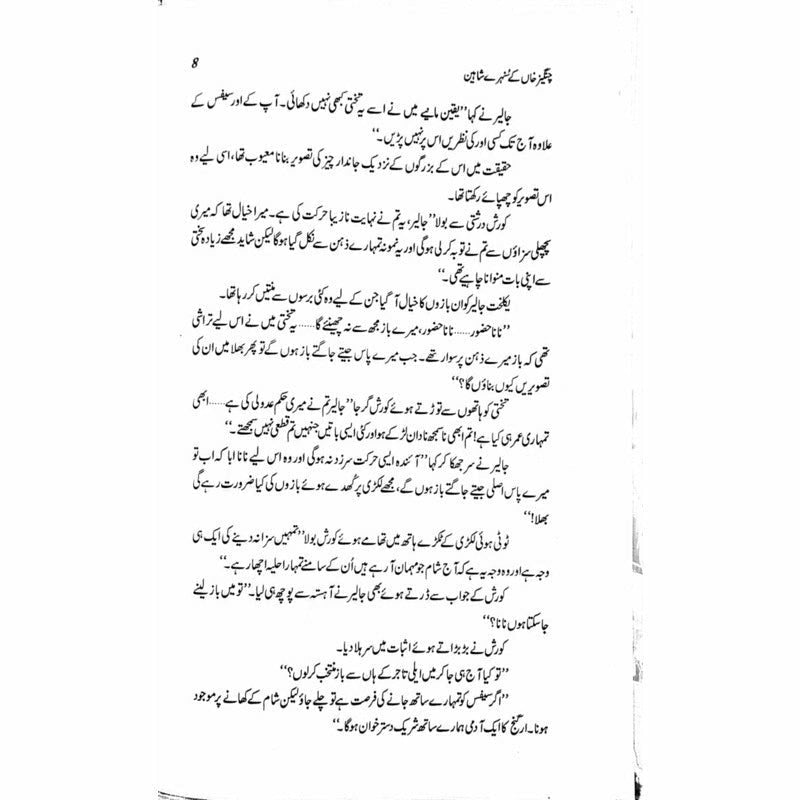 چنگیز خاں کے سُنہرے شاہین
8
جالیر نے کہا ’’یقین مانیے میں نے اسے یہ تختی کبھی نہیں دکھائی۔ آپ کے اور سیفس کے
علاوہ آج تک کسی اور کی نظریں اس پر نہیں پڑیں۔‘‘
حقیقت میں اس کے بزرگوں کے نزدیک جاندار چیز کی تصویر بنانا معیوب تھا، اسی لیے وہ
اس تصویر کو چھپائے رکھتا تھا۔
کورش درشتی سے بولا ’’جالیر، یہ تم نے نہایت نازیبا حرکت کی ہے۔ میرا خیال تھا کہ میری
پچھلی سزاؤں سے تم نے توبہ کر لی ہو گی اور یہ نمونہ تمہارے ذہن سے نکل گیا ہو گا لیکن شاید مجھے زیادہ سختی
سے اپنی بات منوانا چاہیے تھی۔‘‘
یکلخت جالیر کو ان بازوں کا خیال آ گیا جن کے لیے وہ کئی برسوں سے منتیں کر رہا تھا۔
’’نانا حضور...... نانا حضور، میرے باز مجھ سے نہ چھینئے گا...... یہ تختی میں نے اس لیے تراشی
تھی کہ باز میرے ذہن پر سوار تھے۔ جب میرے پاس جیتے جاگتے باز ہوں گے تو پھر بھلا میں ان کی
تصویریں کیوں بناؤں گا؟‘‘
تختی کو ہاتھوں سے توڑتے ہوئے کورش گرجا ’’جالیر تم نے میری حکم عدولی کی ہے...... ابھی
تمہاری عمر ہی کیا ہے! تم ابھی ناسمجھ نادان لڑکے ہو اور کئی ایسی باتیں جنہیں تم قطعی نہیں سمجھتے۔‘‘
جالیر نے سر جھکا کر کہا ’’آئندہ ایسی حرکت سرزد نہ ہو گی اور وہ اس لیے نانا ابا کہ اب تو
میرے پاس اصلی جیتے جاگتے باز ہوں گے، مجھے لکڑی پر کُھدے ہوئے بازوں کی کیا ضرورت رہے گی
بھلا!‘‘
ٹوٹی ہوئی لکڑی کے ٹکڑے ہاتھ میں تھامے ہوئے کورش بولا ’’تمہیں سزا نہ دینے کی ایک ہی
وجہ ہے اور وہ وجہ یہ ہے کہ آج شام جو مہمان آ رہے ہیں اُن کے سامنے تمہارا حلیہ اچھا رہے۔‘‘
کورش کے جواب سے ڈرتے ہوئے بھی جالیر نے آہستہ سے پوچھ ہی لیا۔ ’’تو میں باز لینے
جا سکتا ہوں نانا؟‘‘
کورش نے بڑبڑاتے ہوئے اثبات میں سر ہلا دیا۔
’’تو کیا آج ہی جا کر میں ایلی تاجر کے ہاں سے باز منتخب کر لوں؟‘‘
’’اگر سیفس کو تمہارے ساتھ جانے کی فرصت ہے تو چلے جاؤ لیکن شام کے کھانے پر موجود
ہونا۔ ارگنج کا ایک آدمی ہمارے ساتھ شریک دسترخوان ہو گا۔‘‘